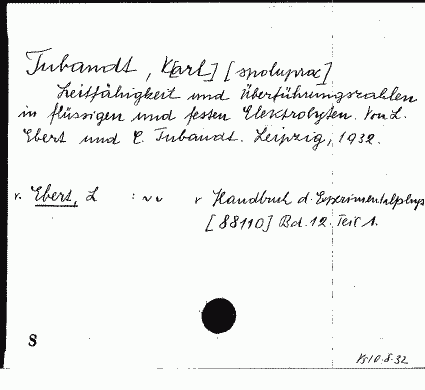 Tubandt, K[arl] [spoluprac]
Leitfähigkeit und Überführungszahlen
in flüssigen und festen Elektrolyten. Von L.
Ebert und C. Tubandt. Leipzig, 1932.
v. Ebert, L : ~ v Handbuch d. Experimentalphys
[88110] Bd. 12. Teil 1.
S
10.8.32